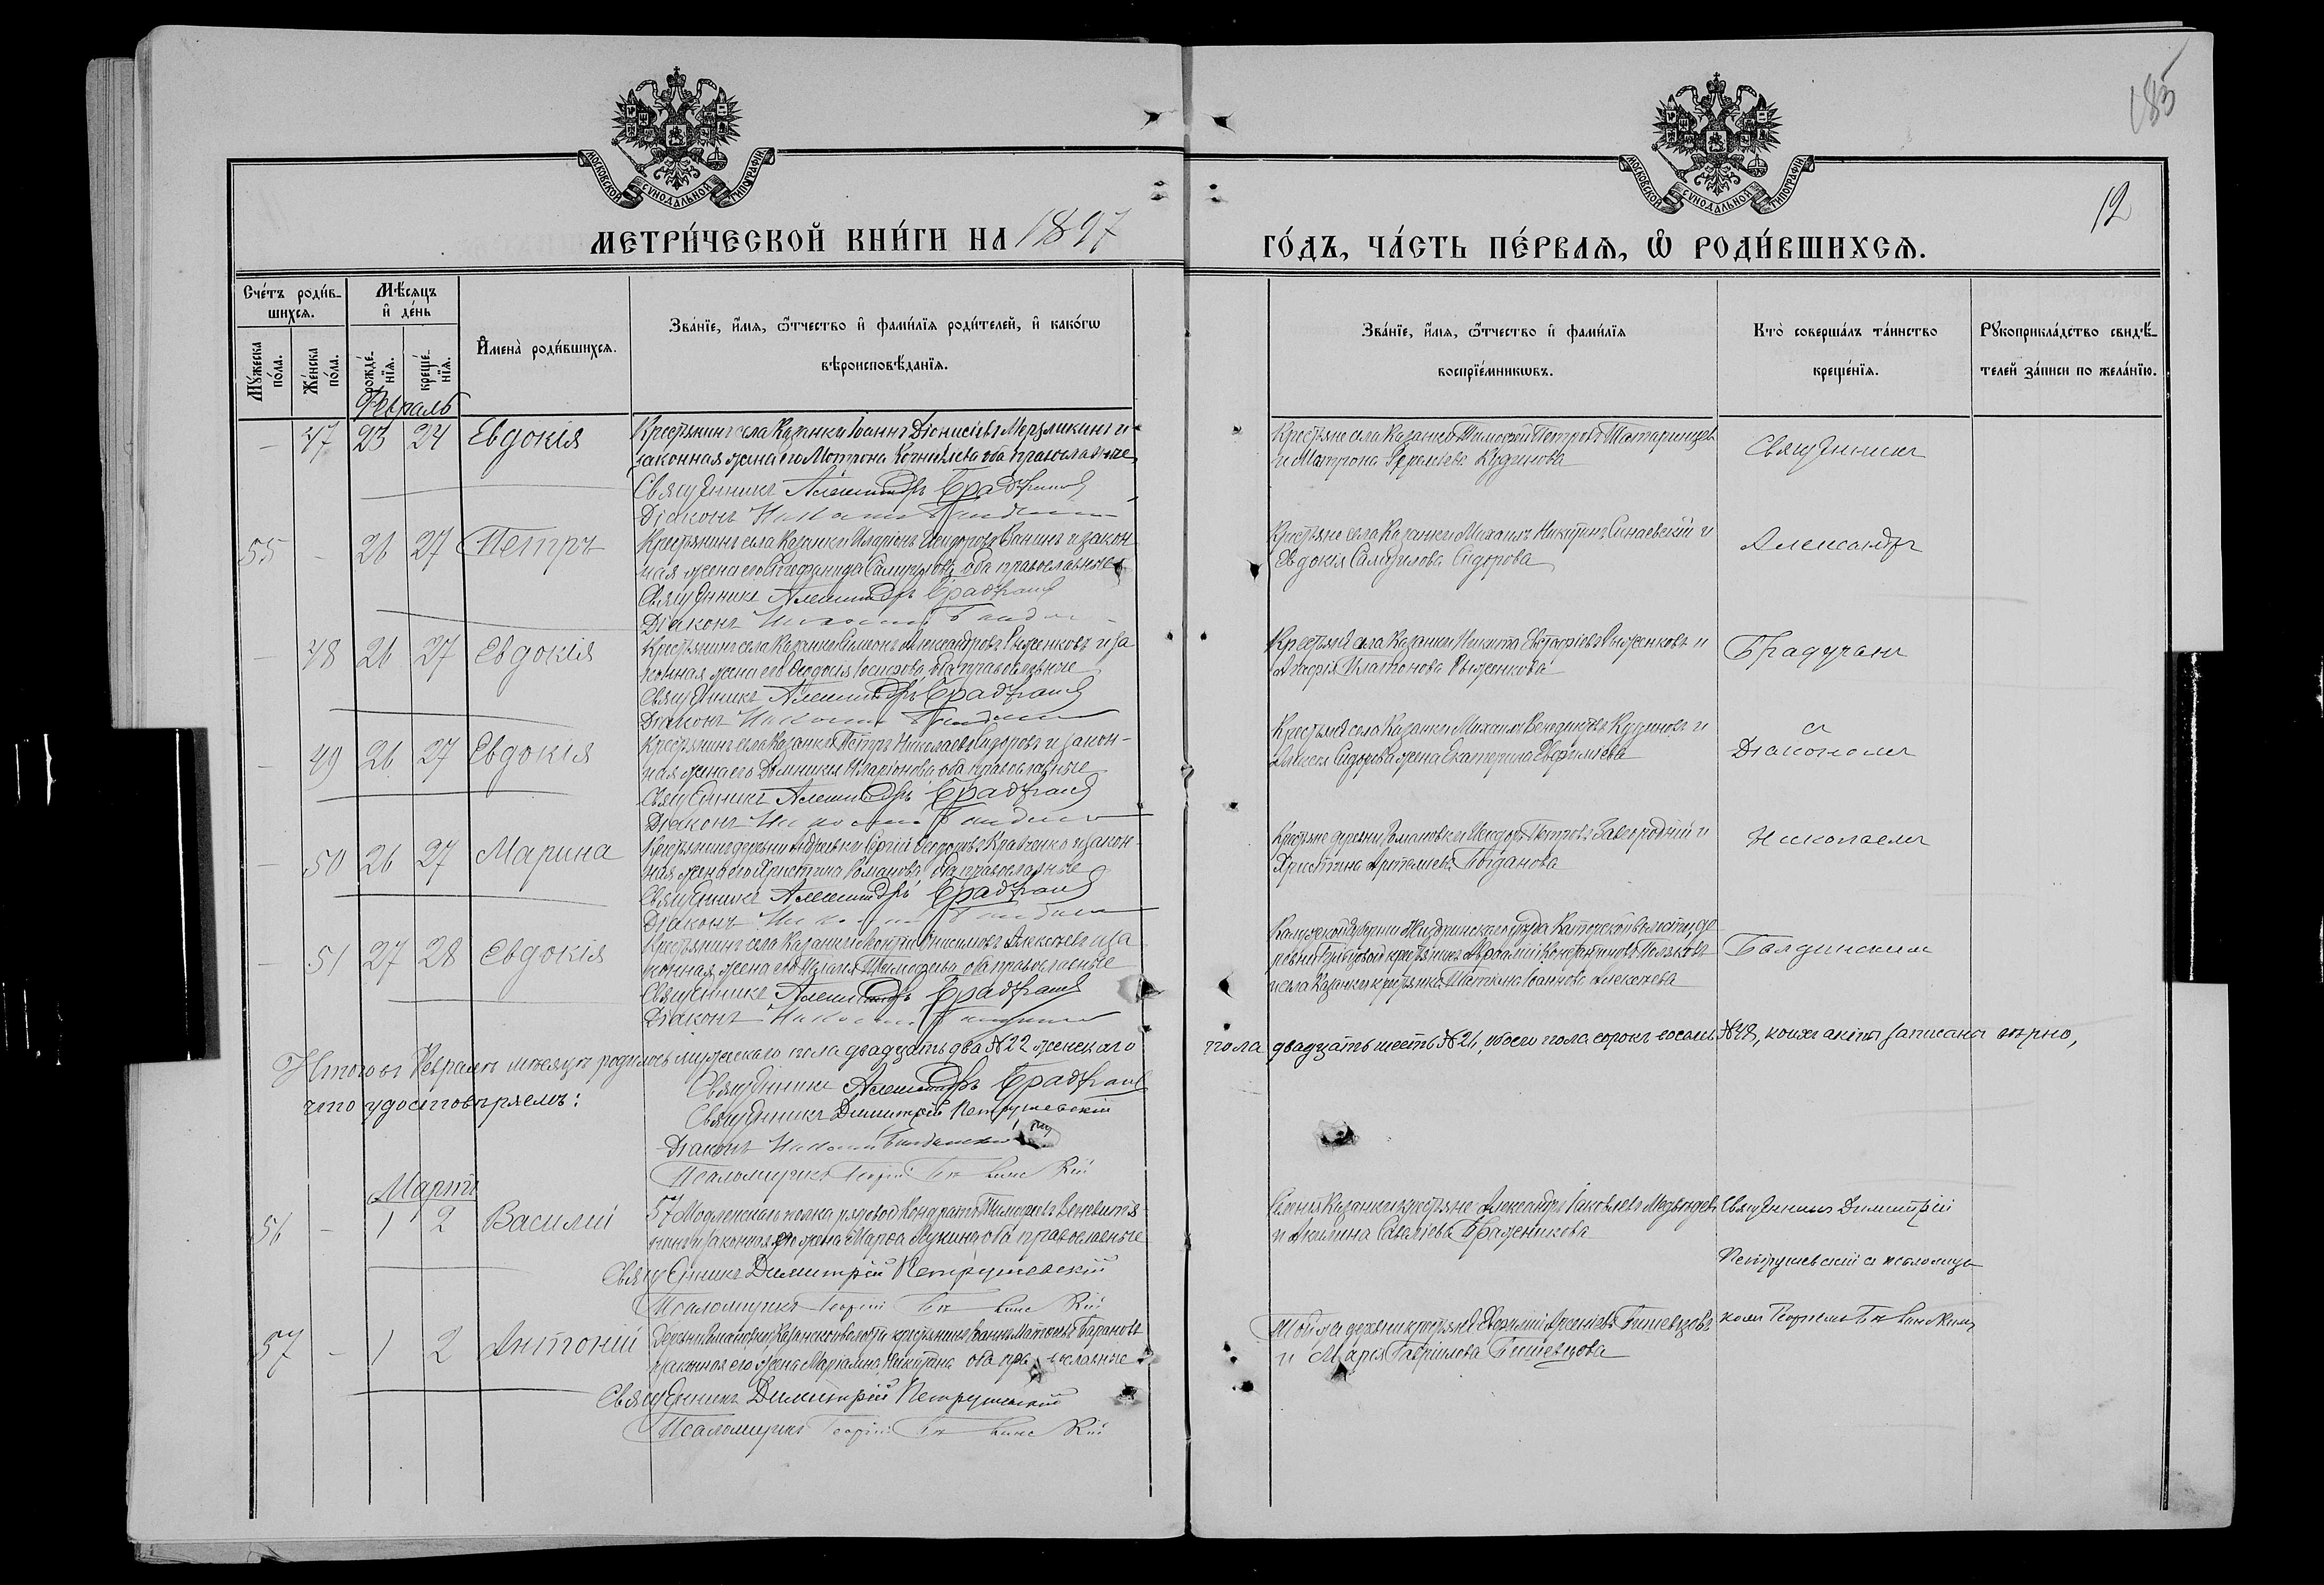 185
12
МОСКОВСКОЙ СУНОДАЛЬНОЙ ТИПОГРАФІИ
МОСКОВСКОЙ СУНОДАЛЬНОЙ ТИПОГРАФІИ
МЕТРИ́ЧЕСКОЙ КНИ́ГИ НА 1897 ГО́ДЪ, ЧА́СТЬ ПЕ́РВАѦ, Ѡ҆ РОДИ́ВШИХСѦ.
Сче́тъ роди́в-
шихсѧ.
Мꙋ́жеска по́ла.
Же́нска по́ла.
Мѣ́сѧцъ
и҆ де́нь
рожде́-
нїѧ.
креще́-
нїѧ.
И҆мена̀ роди́вшихсѧ.
Зва́нїе, и҆́мѧ, ѻ҆́тчество и҆ фами́лїѧ роди́телей, и҆ како́гѡ
вѣроисповѣ́данїѧ.
Зва́нїе, и҆́мѧ, ѻ҆́тчество и҆ фами́лїѧ
воспрїе́мникѡвъ.
Кто̀ соверша́лъ та́инство
креще́нїѧ.
Рꙋкоприкла́дство свидѣ́-
телей за́писи по жела́нїю.
Февраль
— 47 23 24 Евдокія
Крестьянинъ села Казанки Іоаннъ Діонисіевъ Мерзликинъ и
законная жена его Матрона Корнилева оба православные
Священникъ Александръ Брадучанъ
Діаконъ Николай
Крестьяне села Казанки Тимофей Петровъ Татаринцевъ
и Матрона Кудинова
Священникъ
55 — 26 27 Петръ
Крестьянинъ села Казанки Иларіонъ Исидоровъ Ванинъ и закон
ная жена его Стефанида Самуилова оба православные
Священникъ Александръ Брадучанъ
Діаконъ Николай
Крестьяне села Казанки Михаилъ Никитинъ Синаевскій и
Евдокія Самуилова Сидорова
Александръ
— 48 26 27 Евдокія
Крестьянинъ села Казанки Симеонъ Александровъ Рыженковъ и за
конная жена его Феодосія Іосифова оба православные
Священникъ Александръ Брадучанъ
Діаконъ Николай
Крестьяне села Казанки Никита Евстафіевъ Рыженковъ и
Агафія Платонова Рыженкова
Брадучанъ
— 49 26 27 Евдокія
Крестьянинъ села Казанки Петръ Николаевъ Сидоровъ и закон-
ная жена его Домникія Иларіонова оба православные
Священникъ Александръ Брадучанъ
Діаконъ Николай
Крестьяне села Казанки Михаилъ Венедиктовъ Кудиновъ и
Алексія Сидорова жена Екатерина Евфиміева
съ
Діакономъ
— 50 26 27 Марина
Крестьянинъ деревни Андреевки Сергій Феодоровъ Кравченко и закон-
ная жена его Христина Романова оба православные
Священникъ Александръ Брадучанъ
Діаконъ Николай
Крестьяне деревни Романовки Исидоръ Петровъ Завгородній и
Христина Артемьева Богданова
Николаемъ
— 51 27 28 Евдокія
Крестьянинъ села Казанки Онисимовъ Алексеевъ и за
конная жена его Пелагія Тимофеева оба православные
Священникъ Александръ Брадучанъ
Діаконъ Николай
Калужской губерніи Жиздринскаго уѣзда волости де
ревни крестьянинъ Авраамій Константиновъ Поляковъ
и села Казанки крестьянка Татіана Іоаннова Алексеева
Балдинскимъ
Итого въ Февралѣ мѣсяцѣ родилось мужескаго пола двадцать два №22 женскаго пола двадцать шесть №26, обоего пола сорокъ восемь №48, коихъ акты записаны вѣрно,
что удостовѣряемъ:
Священникъ Александръ Брадучанъ
Священникъ Димитрій Петрушевскій
Діаконъ Николай Балдинскій
Псаломщикъ Георгій
Мартъ
56 — 1 2 Василій
57 Модлинскаго полка рядовой Кондратъ Тимофеевъ Веневитя-
нинъ и законная его жена Марѳа Лукина оба православные
Священникъ Димитрій Петрушевскій
Псаломщикъ Георгій
Села Казанки крестьяне Александръ Іаковлевъ Медведевъ
и Акилина Савельева Бражникова
Священникъ Димитрій
Петрушевскій съ псаломщи
57 — 1 2 Антоній
Деревни Романовки, Казанской волости крестьянинъ Іоаннъ Матвѣевъ Барановъ
и законная его жена Маріамна Никитина оба православные
Священникъ Димитрій Петрушевскій
Псаломщикъ Георгій
Той же деревни крестьяне Евфимій Арсеніевъ Бишевцовъ
и Марія Гавріилова Бишевцова
комъ Георгіемъ